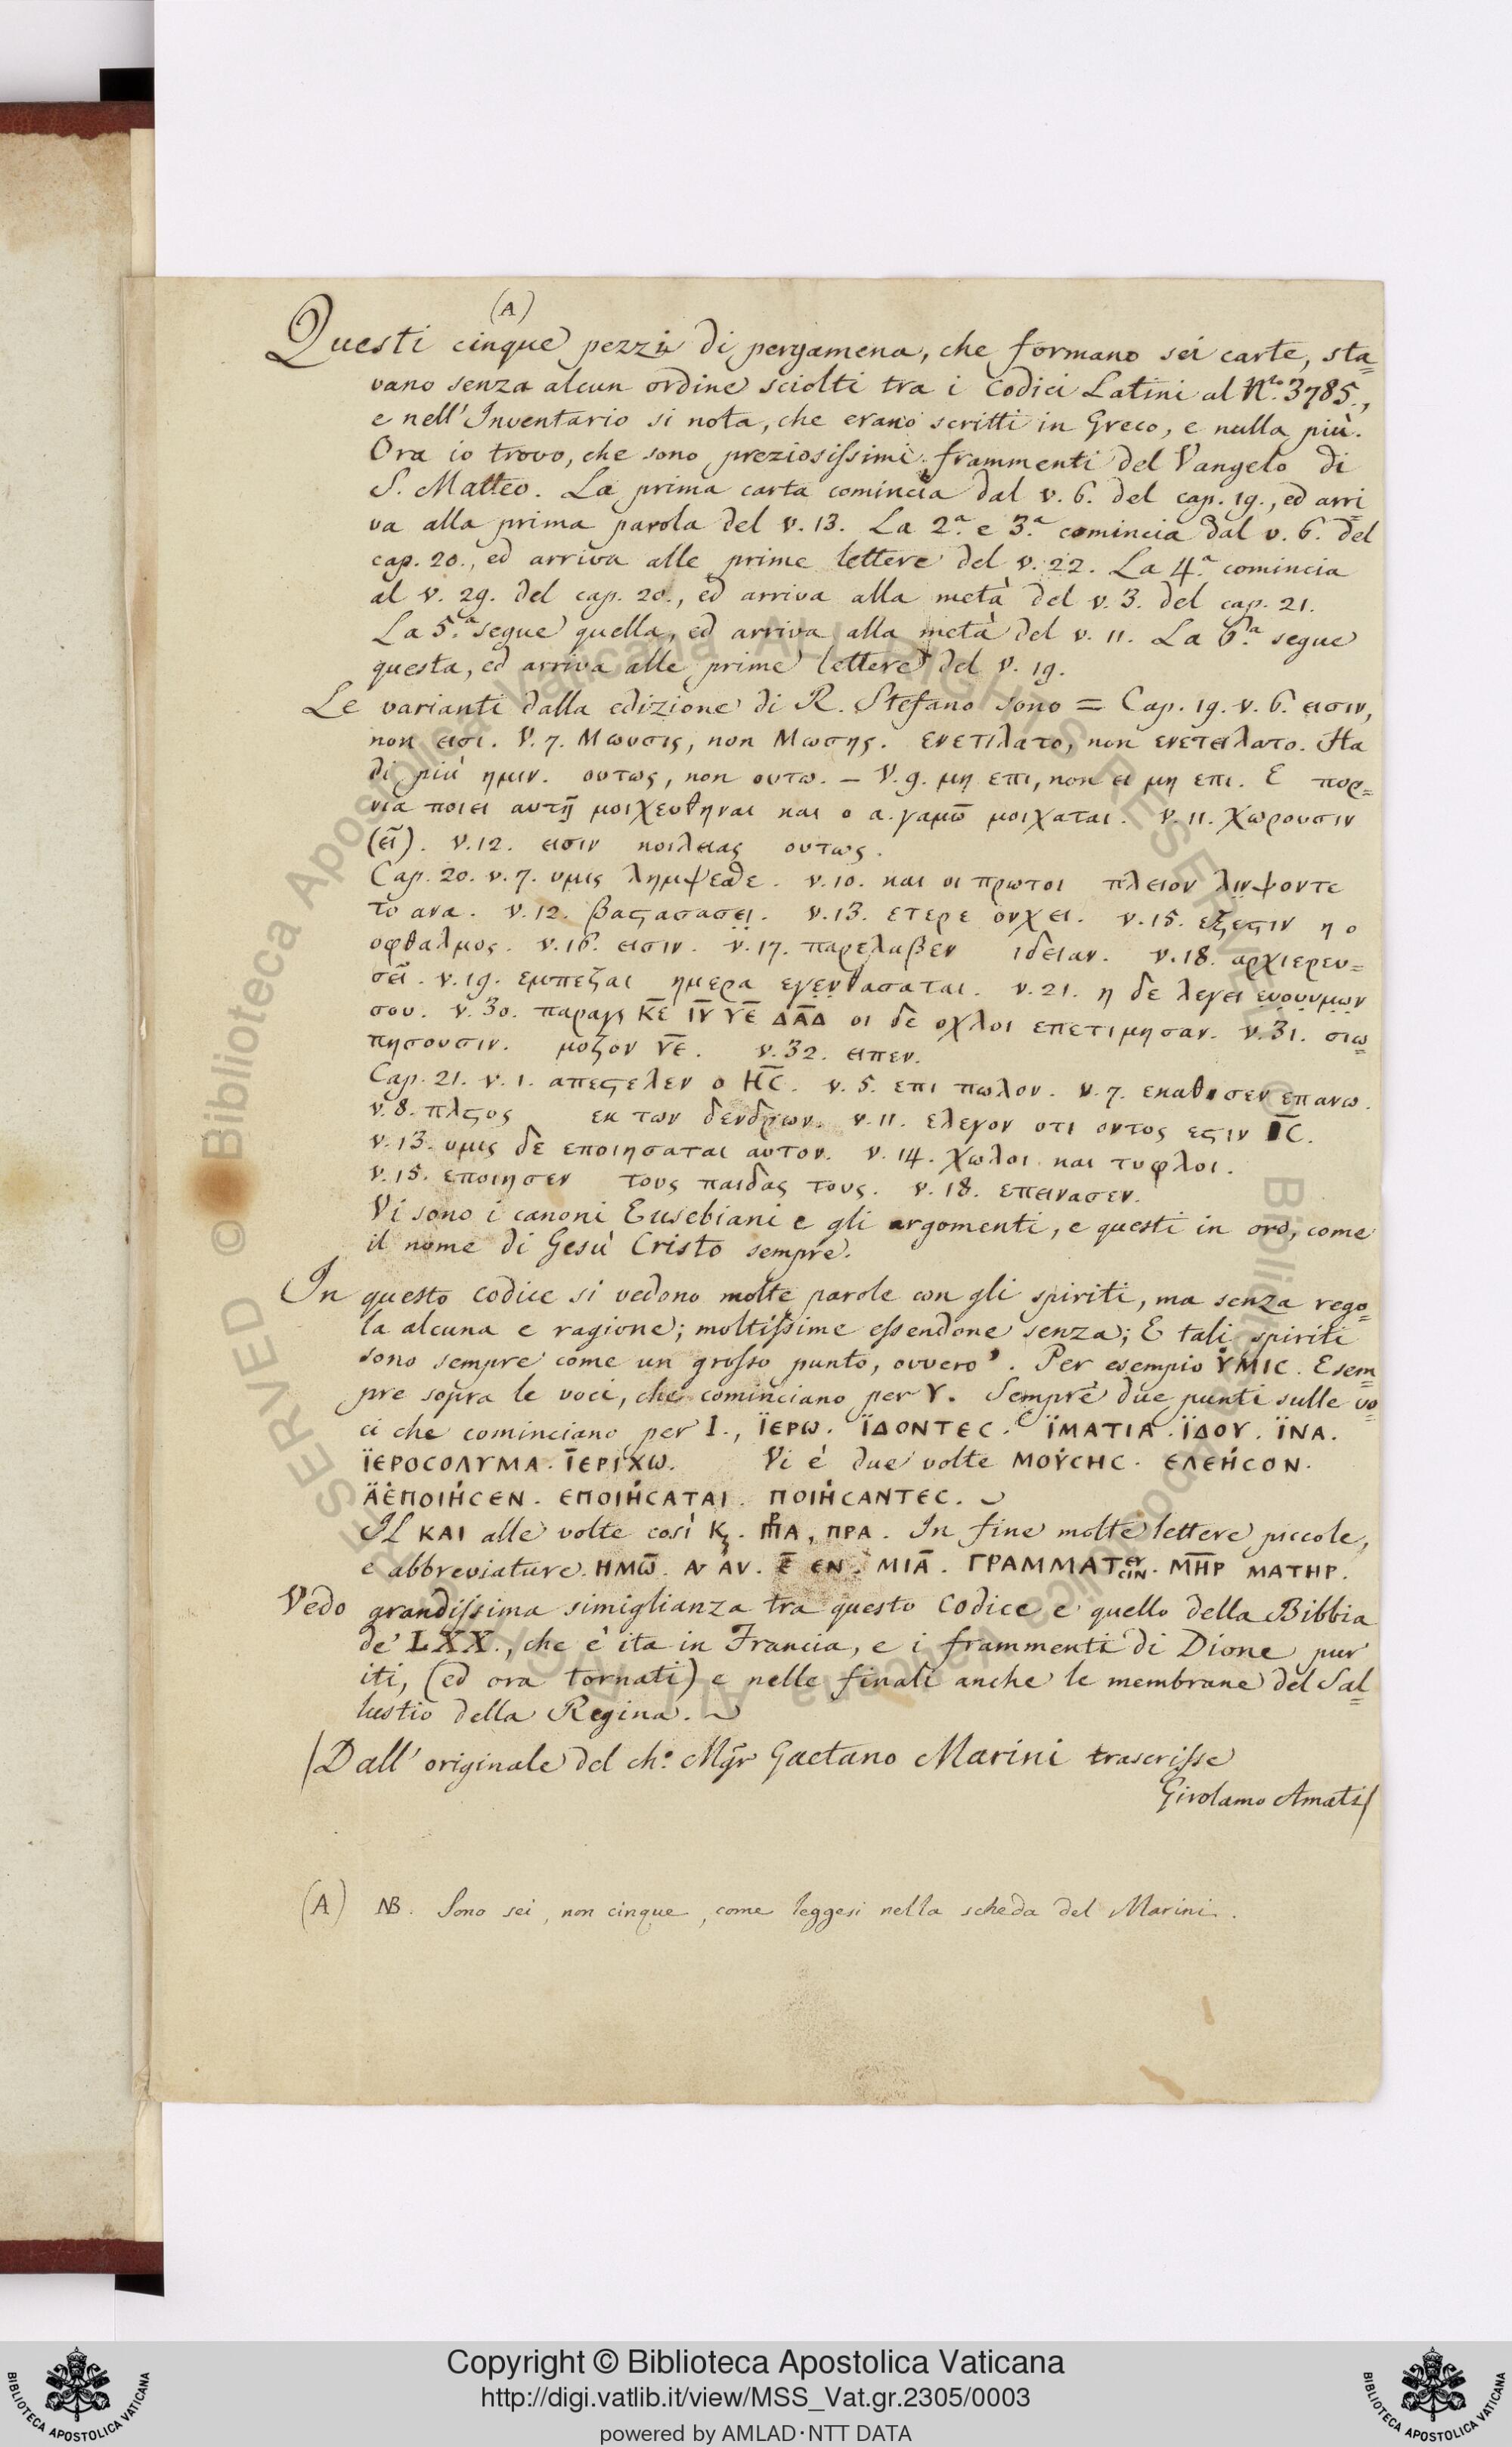 (A)
Questi cinque pezzi di pergamena, che formano sei carte, sta=
vano senza alcun ordine sciolti tra i Codici Latini al N.ro 3785.,
e nell'Inventario si nota, che erano scritti in Greco, e nulla più.
Ora io trovo, che sono preziosissimi frammenti del Vangelo di
S. Matteo. La prima carta comincia dal v. 6. del cap. 19., ed arri=
va alla prima parola del v. 13. La 2.a e 3.a comincia dal v. 6. del
cap. 20., ed arriva alle prime lettere del v. 22. La 4.a comincia
al v. 29. del cap. 20., ed arriva alla metà del v. 3. del cap. 21.
La 5.a segue quella, ed arriva alla metà del v. 11. La 6.a segue
questa, ed arriva alle prime lettere del v. 19.
Le varianti dalla edizione di R. Stefano sono = Cap. 19. v. 6. εισιν,
non εισι. V. 7. Μωυσις, non Μωσης. ενετιλατο, non ενετειλατο. Ha
di più ημιν. ουτως, non ουτω. – V. 9. μη επι, non ει μη επι. E πορ=
νια ποιει αυτη̄ μοιχευθηναι και ο α. γαμω̄ μοιχαται. v. 11. χωρουσιν
(ει̃). v. 12. εισιν κοιλειας ουτως.
Cap. 20. v. 7. υμις λημψεσθε. v. 10. και οι πρωτοι πλειον λινψοντε
το ανα. v. 12. βαϛασασει. v. 13. ετερε ουχει. v. 15. εξεϛιν η ο
οφθαλμος. v. 16. εισιν. v. 17. παρελαβεν ιδειαν. v. 18. αρχιερευ=
σει̃. v. 19. εμπεζαι ημερα εγενθασαται. v. 21. η δε λεγει ευουυμων
σου. v. 30. παραγι Κ̅Ε̅ Ι̅Υ̅ Υ̅Ε̅ Δ̅Α̅Δ̅ οι δε οχλοι επετιμησαν. v. 31. σιω=
πησουσιν. μοζον Υ̅Ε̅. v. 32. ειπεν.
Cap. 21. v. 1. απεϛελεν ο Η̅C̅. v. 5. επι πωλον. v. 7. εκαθισεν επανω.
v. 8. πλϛος εκ των δενδρων. v. 11. ελεγον οτι ουτος εϛιν Ι̅C̅.
v. 13. υμις δε εποιησαται αυτον. v. 14. χωλοι και τυφλοι.
v. 15. εποιησεν τους παιδας τους. v. 18. επεινασεν.
Vi sono i canoni Eusebiani e gli argomenti, e questi in oro, come
il nome di Gesù Cristo sempre.
In questo codice si vedono molte parole con gli spiriti, ma senza rego=
la alcuna e ragione; moltissime essendone senza; E tali spiriti
sono sempre come un grosso punto, ovvero ’. Per esempio ΥΜΙC. E sem=
pre sopra le voci, che cominciano per Υ. Sempre due punti sulle vo=
ci che cominciano per I., ΪΕΡΩ. ΪΔΟΝΤΕC. ΪΜΑΤΙΑ. ΪΔΟΥ. ΪΝΑ.
ΪΕΡΟCΟΛΥΜΑ. ΪΕΡΙΧΩ. Vi è due volte ΜΟΥ̇CΗC. ΕΛΕΗ̇CΟΝ.
ΑΕΠΟΙΗ̇CΕΝ. ΕΠΟΙΗ̇CΑΤΑΙ. ΠΟΙΗ̇CΑΝΤΕC.
Il ΚΑΙ alle volte così Ϗ. ΠΡΑ. In fine molte lettere piccole,
e abbreviature. ΗΜΩ̅. ΑΝ. Ε̅ ΕΝ. ΜΙΑ̅. ΓΡΑΜΜΑΤΕΥCΙΝ. ΜΗΡ ΜΑΤΗΡ.
Vedo grandissima simiglianza tra questo Codice e quello della Bibbia
de' LXX., che è ita in Francia, e i frammenti di Dione pur
iti, (ed ora tornati) e nelle finali anche le membrane del Sal=
lustio della Regina.
/Dall'originale del ch.o Mgr Gaetano Marini trascrisse
Girolamo Amati/
(A) NB. Sono sei, non cinque, come leggesi nella scheda del Marini.
© Biblioteca Apostolica Vaticana ALL RIGHTS RESERVED
BIBLIOTECA APOSTOLICA VATICANA
Copyright © Biblioteca Apostolica Vaticana
http://digi.vatlib.it/view/MSS_Vat.gr.2305/0003
powered by AMLAD·NTT DATA
BIBLIOTECA APOSTOLICA VATICANA